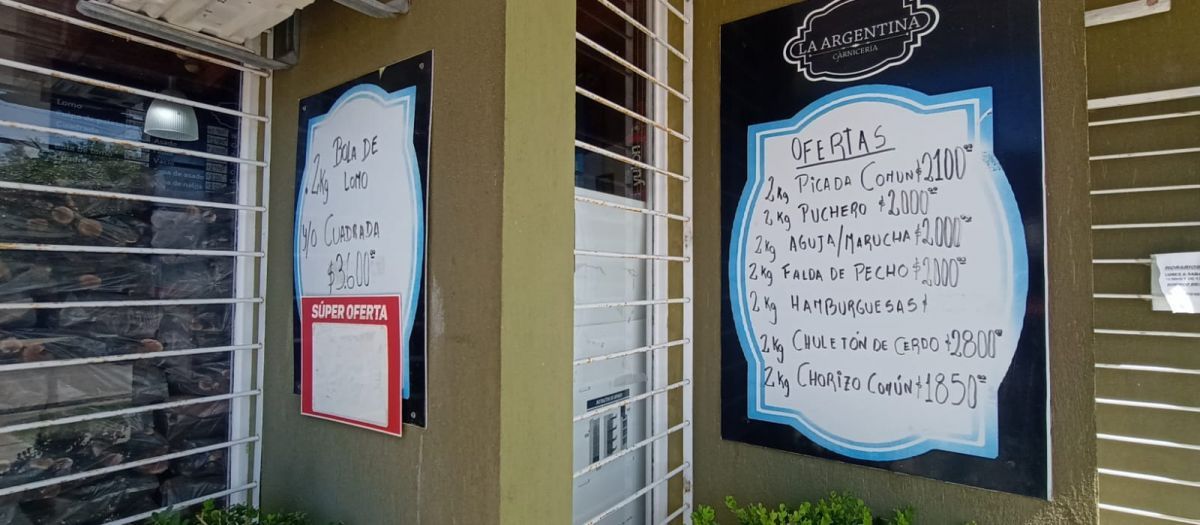 Lomo
. 2Kg BOLA DE
LOMO
y/o CUADRADA
$3.600 00
SÚPER OFERTA
LA ARGENTINA
CARNICERÍA
OFERTAS
2Kg PICADA COMUN $2100 00
2Kg PUCHERO $2.000 00
2Kg AGUJA/MARUCHA $2.000 00
2Kg FALDA DE PECHO $2.000 00
2Kg HAMBURGUESAS $
2Kg CHULETÓN DE CERDO $2800 00
2Kg CHORIZO COMÚN $1850 00
HORARIOS